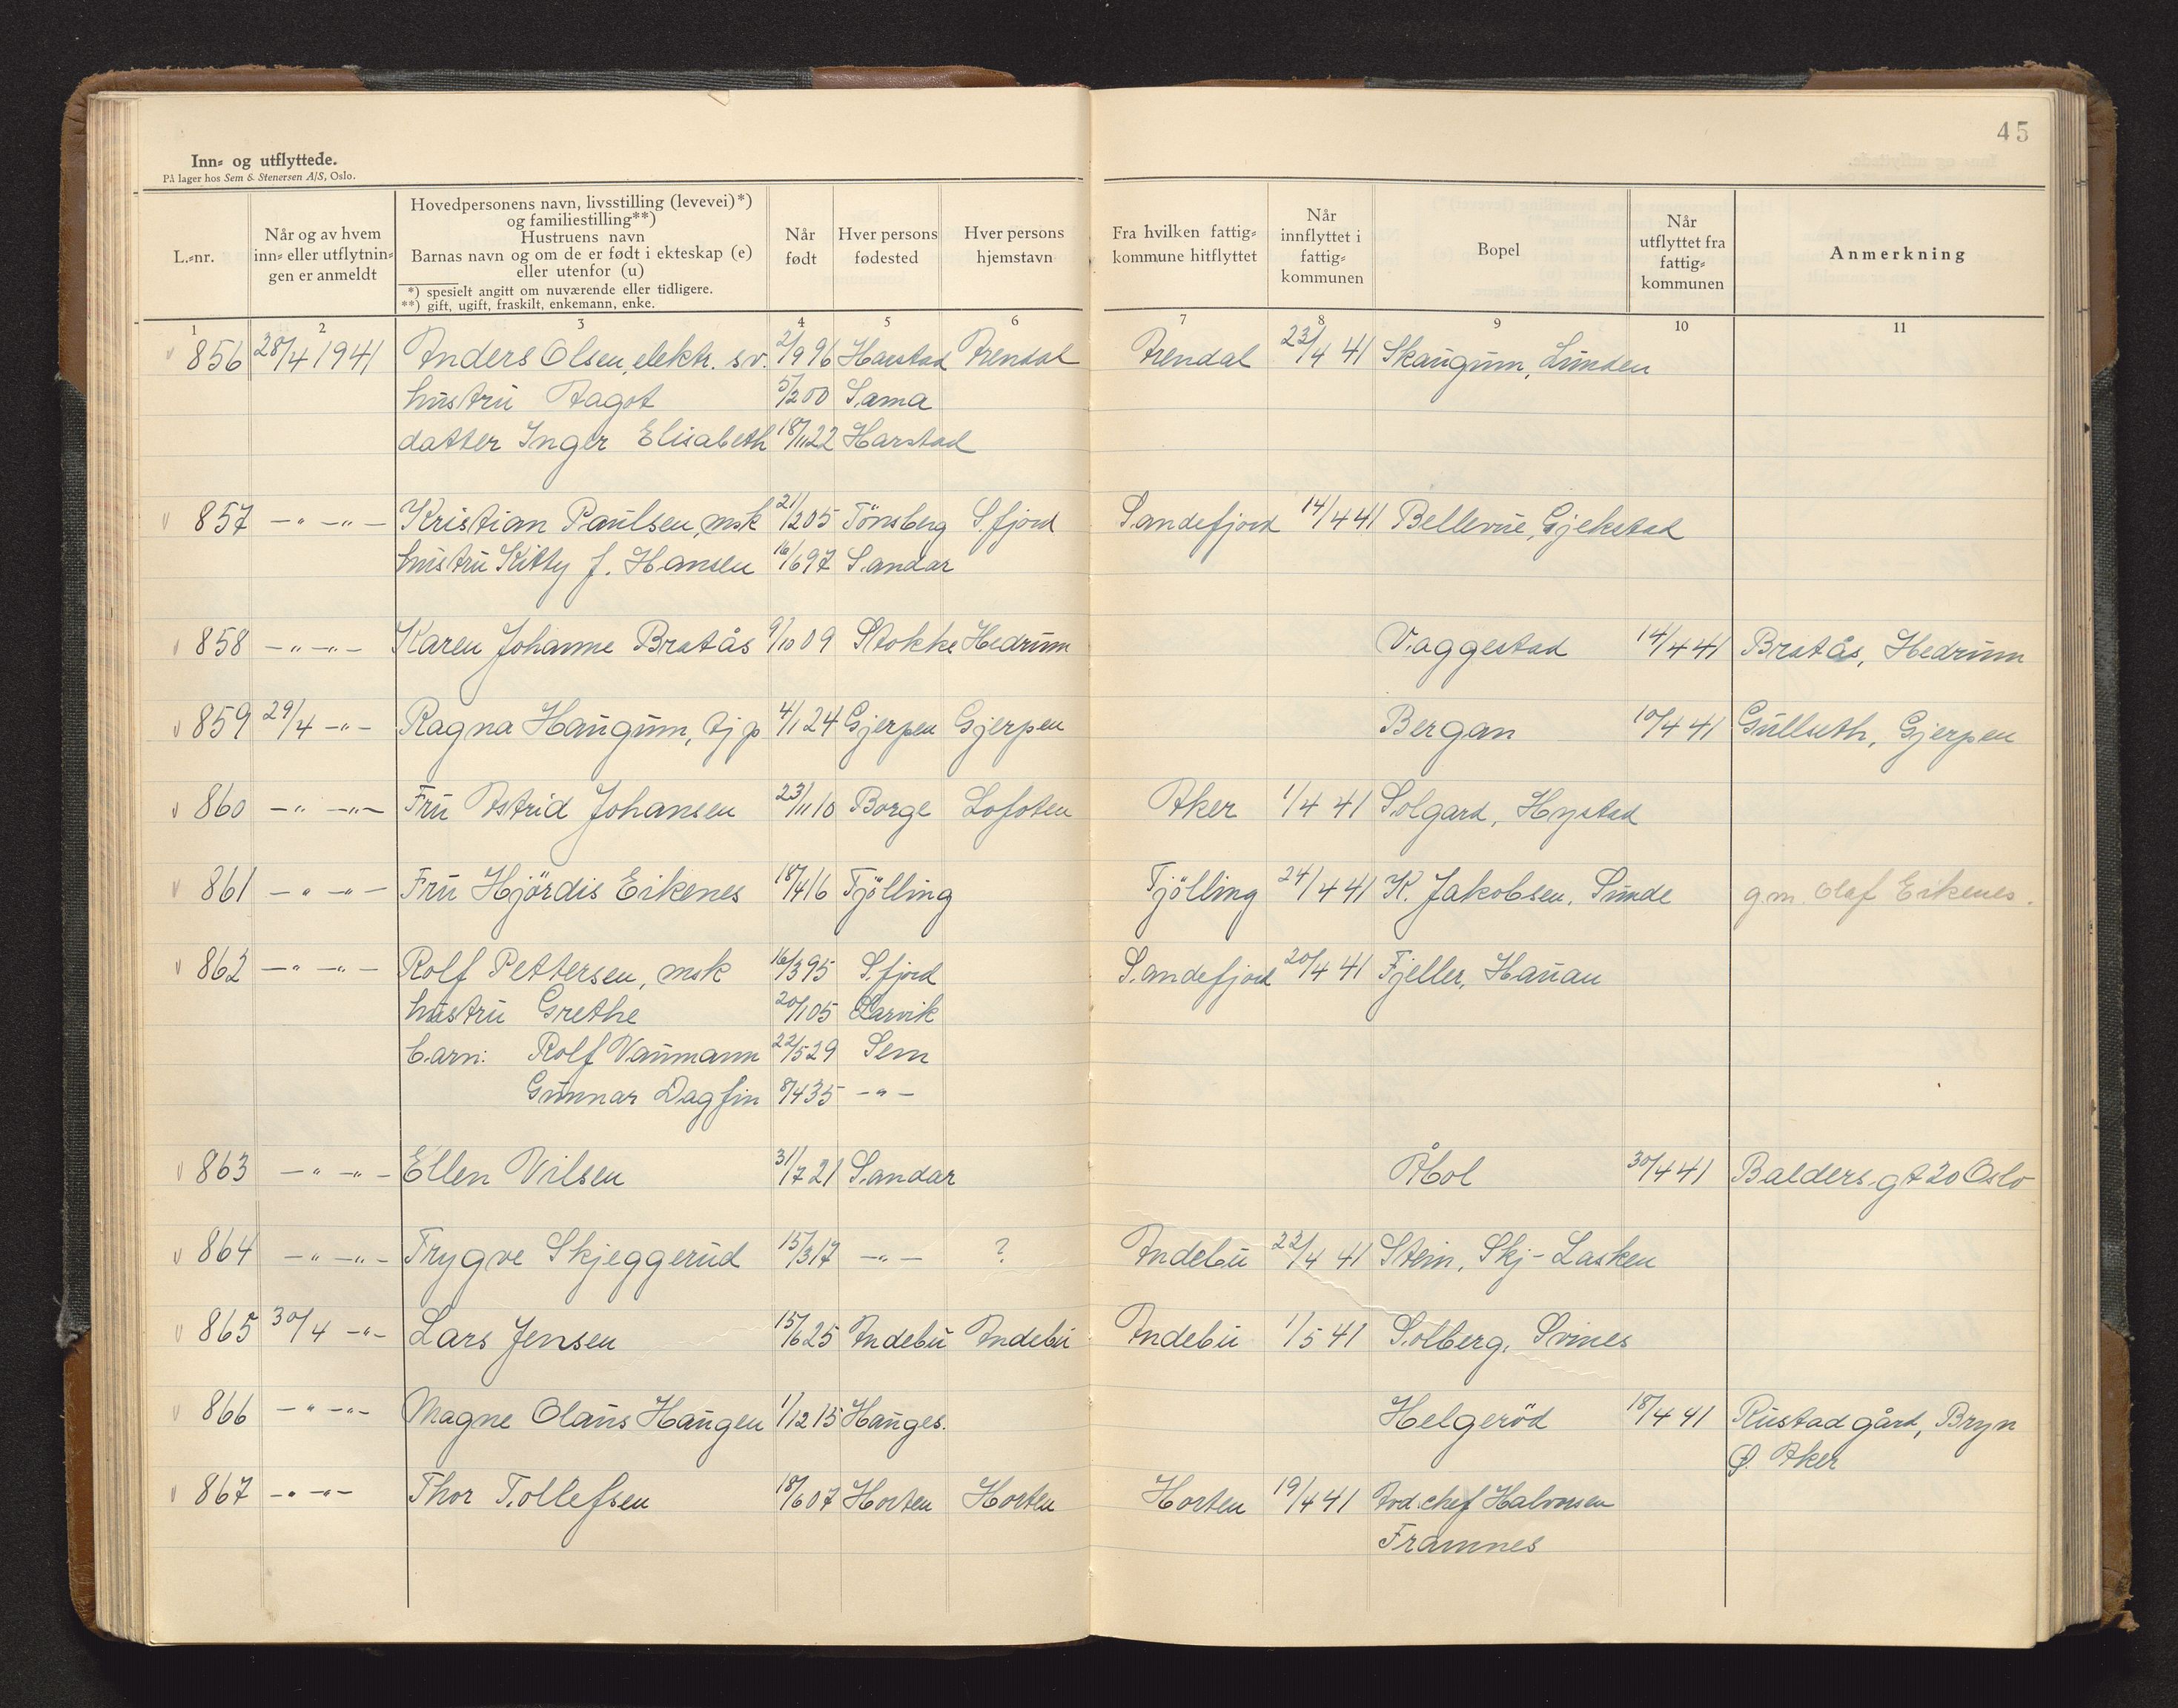 45
Inn- og utflyttede.
På lager hos Sem & Stenersen A/S, Oslo.
L.-nr.
Når og av hvem inn- eller utflytnin-gen er anmeldt
Hovedpersonens navn, livsstilling (levevei)*) og familiestilling**)
Hustruens navn
Barnas navn og om de er født i ekteskap (e) eller utenfor (u)
*) spesielt angitt om nuværende eller tidligere.
**) gift, ugift, fraskilt, enkemann, enke.
Når født
Hver persons fødested
Hver persons hjemstavn
Fra hvilken fattig-kommune hitflyttet
Når innflyttet i fattig-kommunen
Bopel
Når utflyttet fra fattig-kommunen
Anmerkning
1 2 3 4 5 6 7 8 9 10 11
856 28/4 1941 Anders Olsen, elektr. sv. 2/9 96 Harstad Arendal Arendal 23/4 41 Skaugum, Lunden
hustru Aagot 5/2 00 Sama
datter Inger Elisabeth 18/11 22 Harstad
857 -"- -"- Kristian Paulsen, msk 21/2 05 Tönsberg S.fjord Sandefjord 14/4 41 Bellevue, Gjekstad
hustru Kitty f. Hansen 16/6 97 Sandar
858 -"- -"- Karen Johanne Bratås 9/10 09 Stokke Hedrum Vaggestad 14/4 41 Bratås, Hedrum
859 29/4 -"- Ragna Haugum, tj.p 4/1 24 Gjerpen Gjerpen Bergan 10/4 41 Gulluth, Gjerpen
860 -"- -"- Fru Astrid Johansen 23/11 10 Borge Lofoten Aker 1/4 41 Solgard, Hystad
861 -"- -"- Fru Hjördis Eikenes 18/4 16 Tjölling Tjölling 24/4 41 K. Jakobsen, Sunde g.m. Olaf Eikenes.
862 -"- -"- Rolf Pettersen, msk 16/3 95 S.fjord Sandefjord 20/4 41 Fjeller, Hauan
hustru Grethe 20/1 05 Larvik
barn: Rolf Vaumann 22/5 29 Sem
Gunnar Dagfin 8/4 35 -"-
863 -"- -"- Ellen Nilsen 31/7 21 Sandar Åbol 30/4 41 Balders.gt 20 Oslo
864 -"- -"- Trygve Skjeggerud 15/3 17 -"- ? Andebu 22/4 41 Stein, Skj-Lasken
865 30/4 -"- Lars Jensen 15/6 25 Andebu Andebu Andebu 1/5 41 Solberg, Svines
866 -"- -"- Magne Olaus Haugen 1/12 15 Hauges. Helgeröd 18/4 41 Rustad gård, Bryn
Ø. Aker
867 -"- -"- Thor Tollefsen 18/6 07 Horten Horten Horten 19/4 41 Avd.chef Halvorsen
Framnes